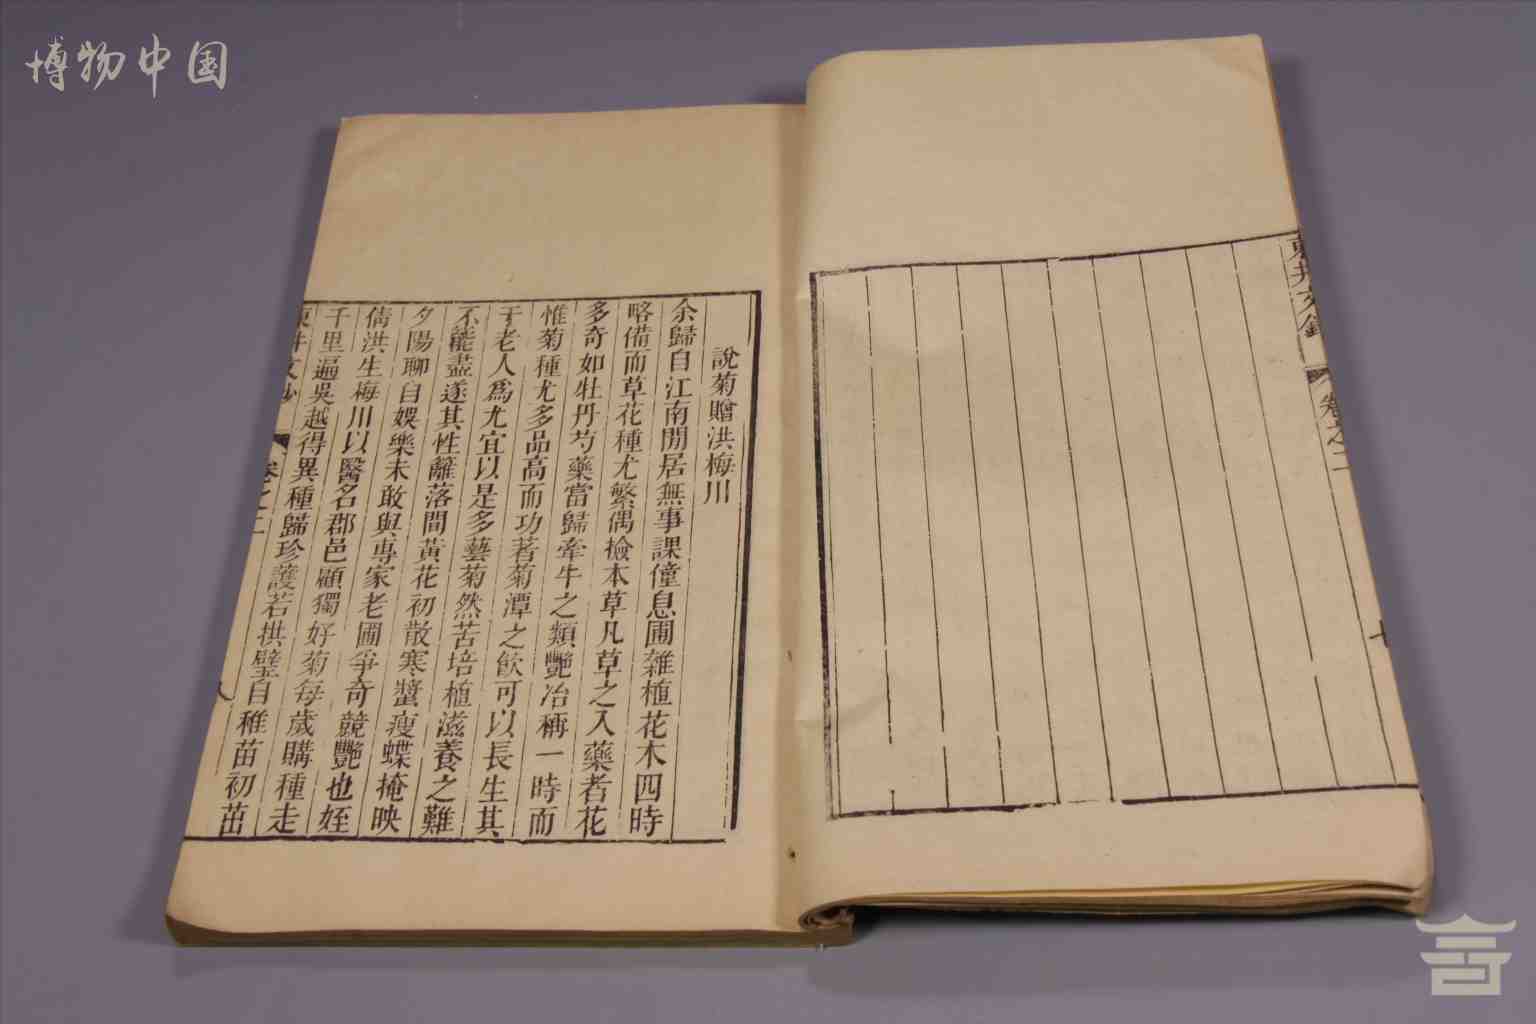 博物中国
卷之二
說菊贈洪梅川
余歸自江南閒居無事課僮息圃雜植花木四時
略備而草花種尤繁偶檢本草凡草之入藥者花
多奇如牡丹芍藥當歸牽牛之類艷冶稱一時而
惟菊種尤多品高而功著菊潭之飲可以長生其
于老人爲尤宜以是多藝菊然苦培植滋養之難
不能盡遂其性籬落間黃花初散寒螿瘦蝶掩映
夕陽聊自娛樂未敢與專家老圃爭奇競艷也姪
倩洪生梅川以醫名郡邑顧獨好菊每歲購種走
千里遍吳越得異種歸珍護若拱璧自稚苗初茁
東井文鈔 卷之二 八